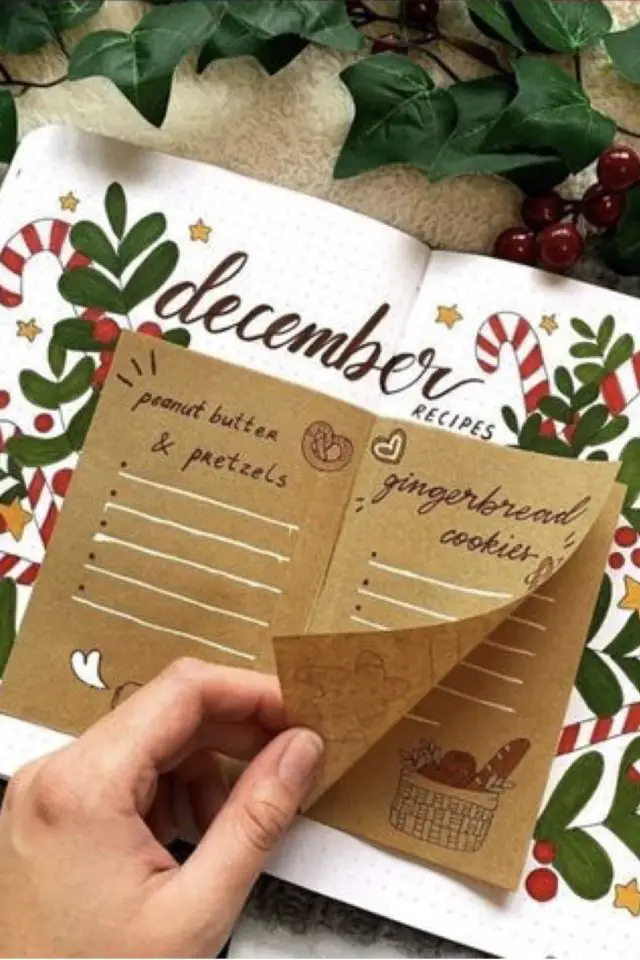 december
RECIPES
peanut butter
& pretzels
gingerbread
cookies